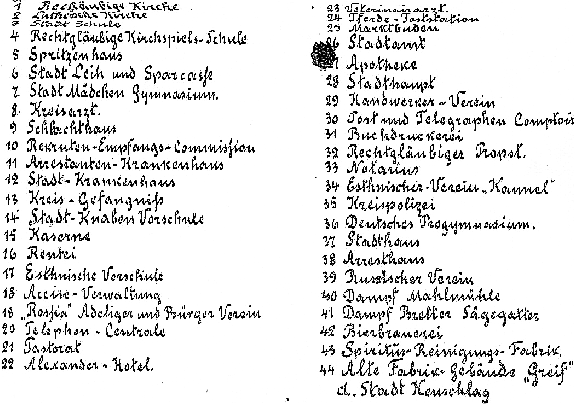 1 Rechtläufige Kirche
2 Lutherische Kirche
3 Stadt Schule
4 Rechtgläubige Kirchspiels-Schule
5 Spritzenhaus
6 Stadt Leih und Sparcasse
7 Stadt Mädchen Gymnasium.
8 Kreisarzt.
9 Schlachthaus
10 Rekruten-Empfangs-Commission
11 Arrestanten-Krankenhaus
12 Stadt-Krankenhaus
13 Kreis-Gefängniß
14 Stadt-Knaben Vorschule
15 Kaserne
16 Rentei
17 Esthnische Vorschule
18 Accise-Verwaltung
19 "Rossia" Adeliger und Bürger Verein
20 Telephon-Centrale
21 Pastorat
22 Alexander-Hotel.
23 Veterinairarzt.
24 Pferde-Poststation
25 Marktbuden
26 Stadtamt
Apotheke
28 Stadthaupt
29 Handwerker-Verein
30 Post und Telegraphen Comptoir
31 Buchdruckerei
32 Rechtgläubiger Propst.
33 Notarius
34 Esthnischer-Verein "Kannel"
35 Kreispolizei
36 Deutsches Progymnasium.
37 Stadthaus
38 Arresthaus
39 Russischer Verein
40 Dampf Mahlmühle
41 Dampf Bretter Sägegatter
42 Bierbrauerei
43 Spiritus-Reinigungs-Fabrik.
44 Alte Fabrik-Gebäude "Greif"
d. Stadt Heuschlag